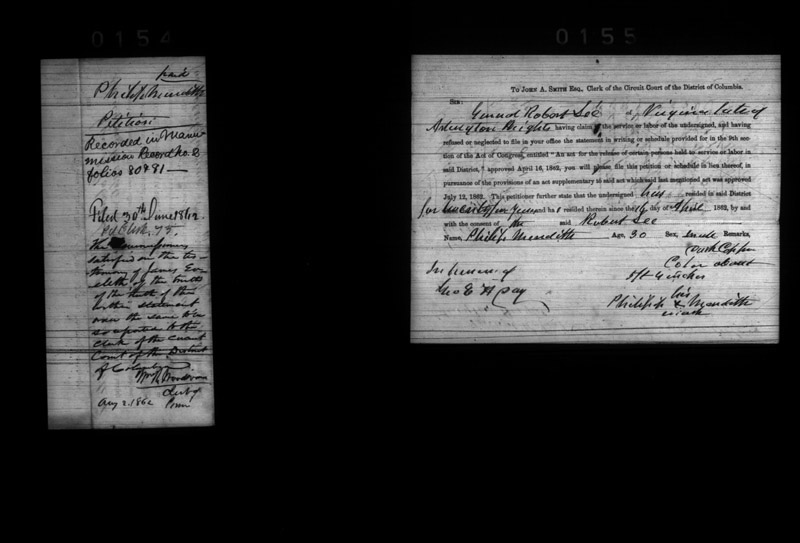 0154
paid
Philip Meredith
Petition
Recorded in Manu-
mission Record No. 2
folios 80 & 81
Filed 30th June 1862
The
satisfied on the tes-
timony of James Eve-
leth of the truth
of the truth of the
within statement
the same to be
so certified to the
clerk of the Circuit
Court of the District
of Columbia
Wm R Woodward
Aug 2. 1862
0155
To John A. Smith Esq., Clerk of the Circuit Court of the District of Columbia.
Sir:
General Robert Lee of Virginia late of
Arlington Heights having claim to the service or labor of the undersigned, and having
refused or neglected to file in your office the statement in writing or schedule provided for in the 9th sec-
tion of the Act of Congress, entitled "An act for the release of certain persons held to service or labor in
said District," approved April 16, 1862, you will please file this petition or schedule in lieu thereof, in
pursuance of the provisions of an act supplementary to said act which said last mentioned act was approved
July 12, 1862. This petitioner further state that the undersigned has resided in said District
for years and has resided therein since the 16 day of April 1862, by and
with the consent of the said Robert Lee
Name, Philip Meredith Age, 30 Sex, male Remarks,
Dark Copper
Color about
5 ft 4 inches
In presence of
Geo E H Day
his
Philip X Meredith
mark